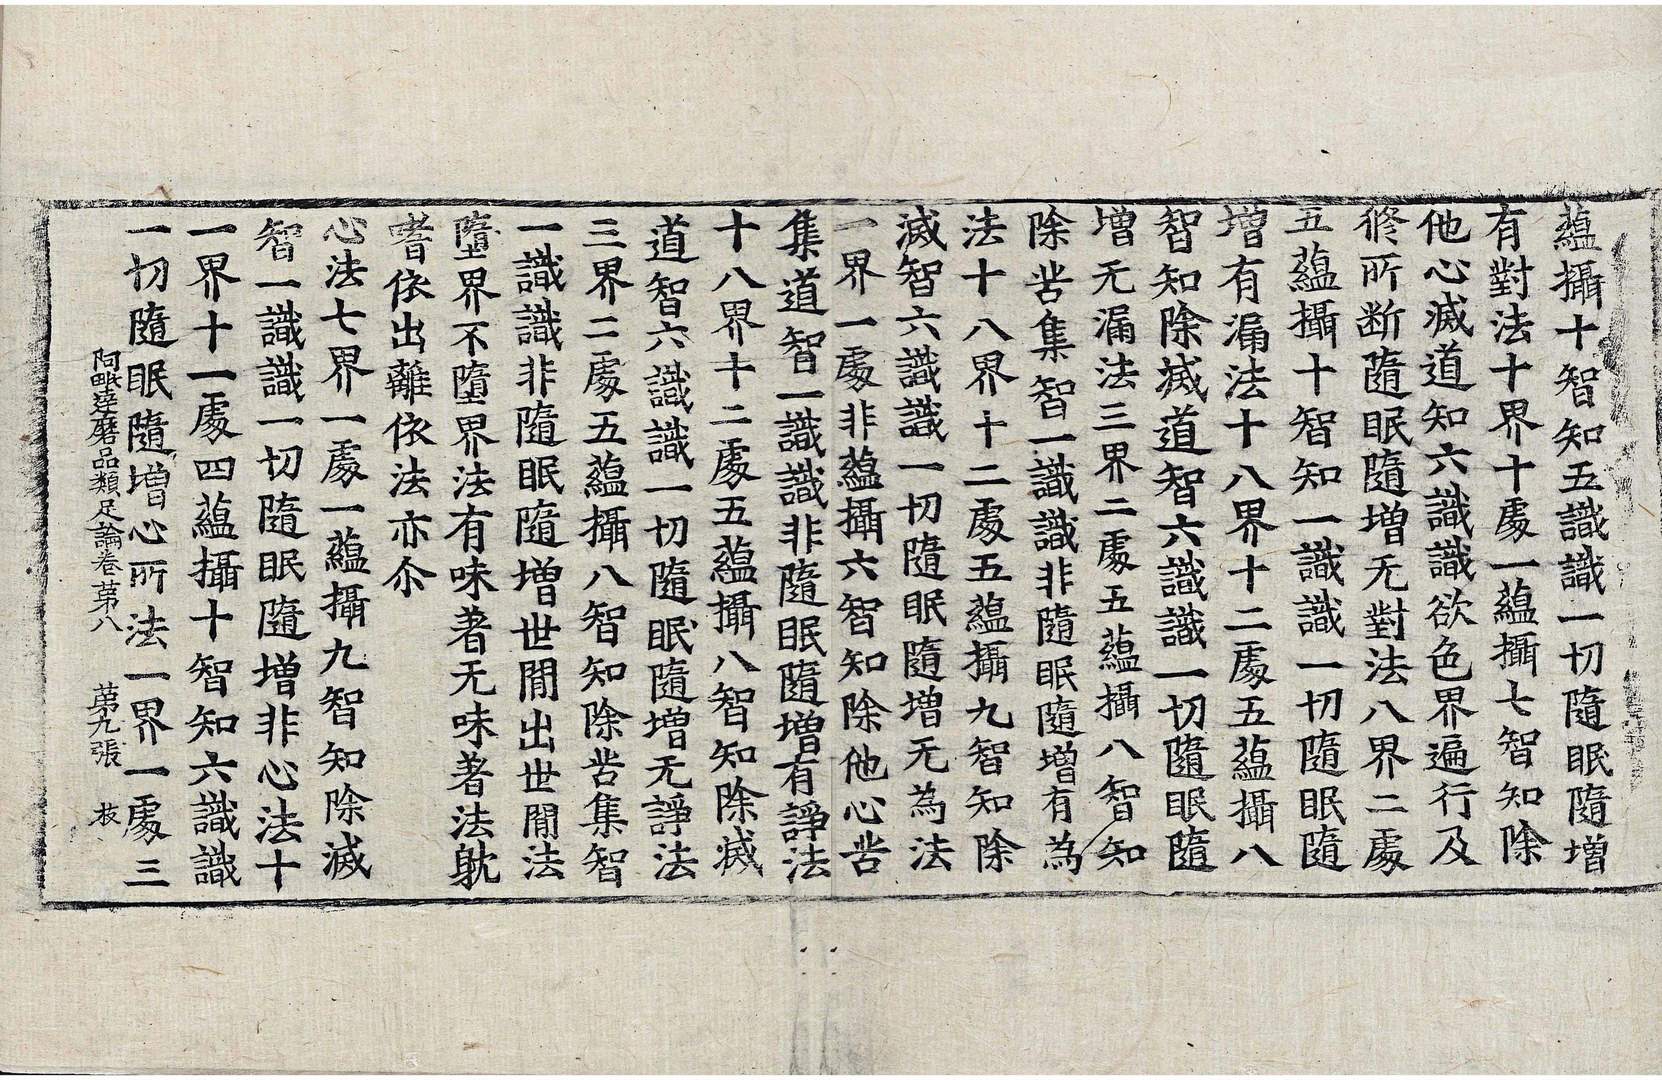 蘊攝十智知五識識一切隨眠隨增
有對法十界十處一蘊攝七智知除
他心滅道知六識識欲色界遍行及
修所断隨眠隨增无對法八界二處
五蘊攝十智知一識識一切隨眠隨
增有漏法十八界十二處五蘊攝八
智知除滅道智六識識一切隨眠隨
增无漏法三界二處五蘊攝八智知
除苦集智一識識非隨眠隨增有為
法十八界十二處五蘊攝九智知除
滅智六識識一切隨眠隨增无為法
一界一處非蘊攝六智知除他心苦
集道智一識識非隨眠隨增有諍法
十八界十二處五蘊攝八智知除滅
道智六識識一切隨眠隨增无諍法
三界二處五蘊攝八智知除苦集智
一識識非隨眠隨增世間出世間法
墮界不墮界法有味著无味著法躭
嗜依出離依法亦尒
心法七界一處一蘊攝九智知除滅
智一識識一切隨眠隨增非心法十
一界十一處四蘊攝十智知六識識
一切隨眠隨增心所法一界一處三
阿毗達磨品類足論卷苐八 苐九張 枝